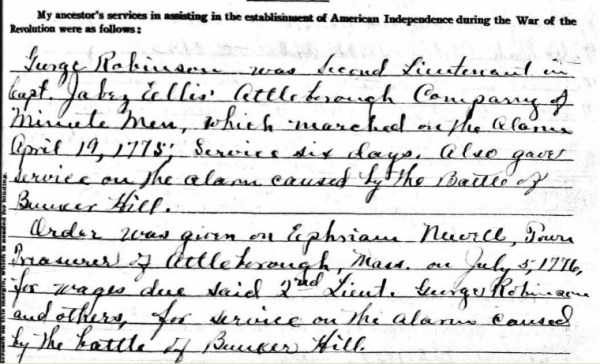 My ancestor's services in assisting in the establishment of American Independence during the War of the
Revolution were as follows:
George Robinson was Second Lieutenant in
Capt. Jabez Ellis' Attleborough Company of
Minute Men, which marched on the Alarm
April 19, 1775; Service six days. Also gave
service on the alarm caused by the Battle of
Bunker Hill.
Order was given on Ephriam Newell, Town
Treasurer of Attleborough, Mass. on July 5, 1776,
for wages due said 2nd Lieut. George Robinson
and others, for service on the alarm caused
by the battle of Bunker Hill.